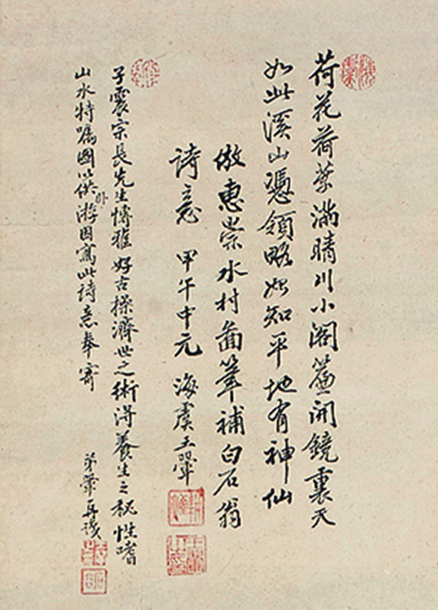 荷花荷葉滿晴川小閣簾開鏡裏天
如此溪山憑領略始知平地有神仙
倣惠崇水村圖筆補白石翁
詩意 甲午中元 海虞王翬
子震宗長先生博雅好古操濟世之術得養生之秘性嗜
山水特囑圖以供臥遊因寫此詩意奉寄
弟翬再識